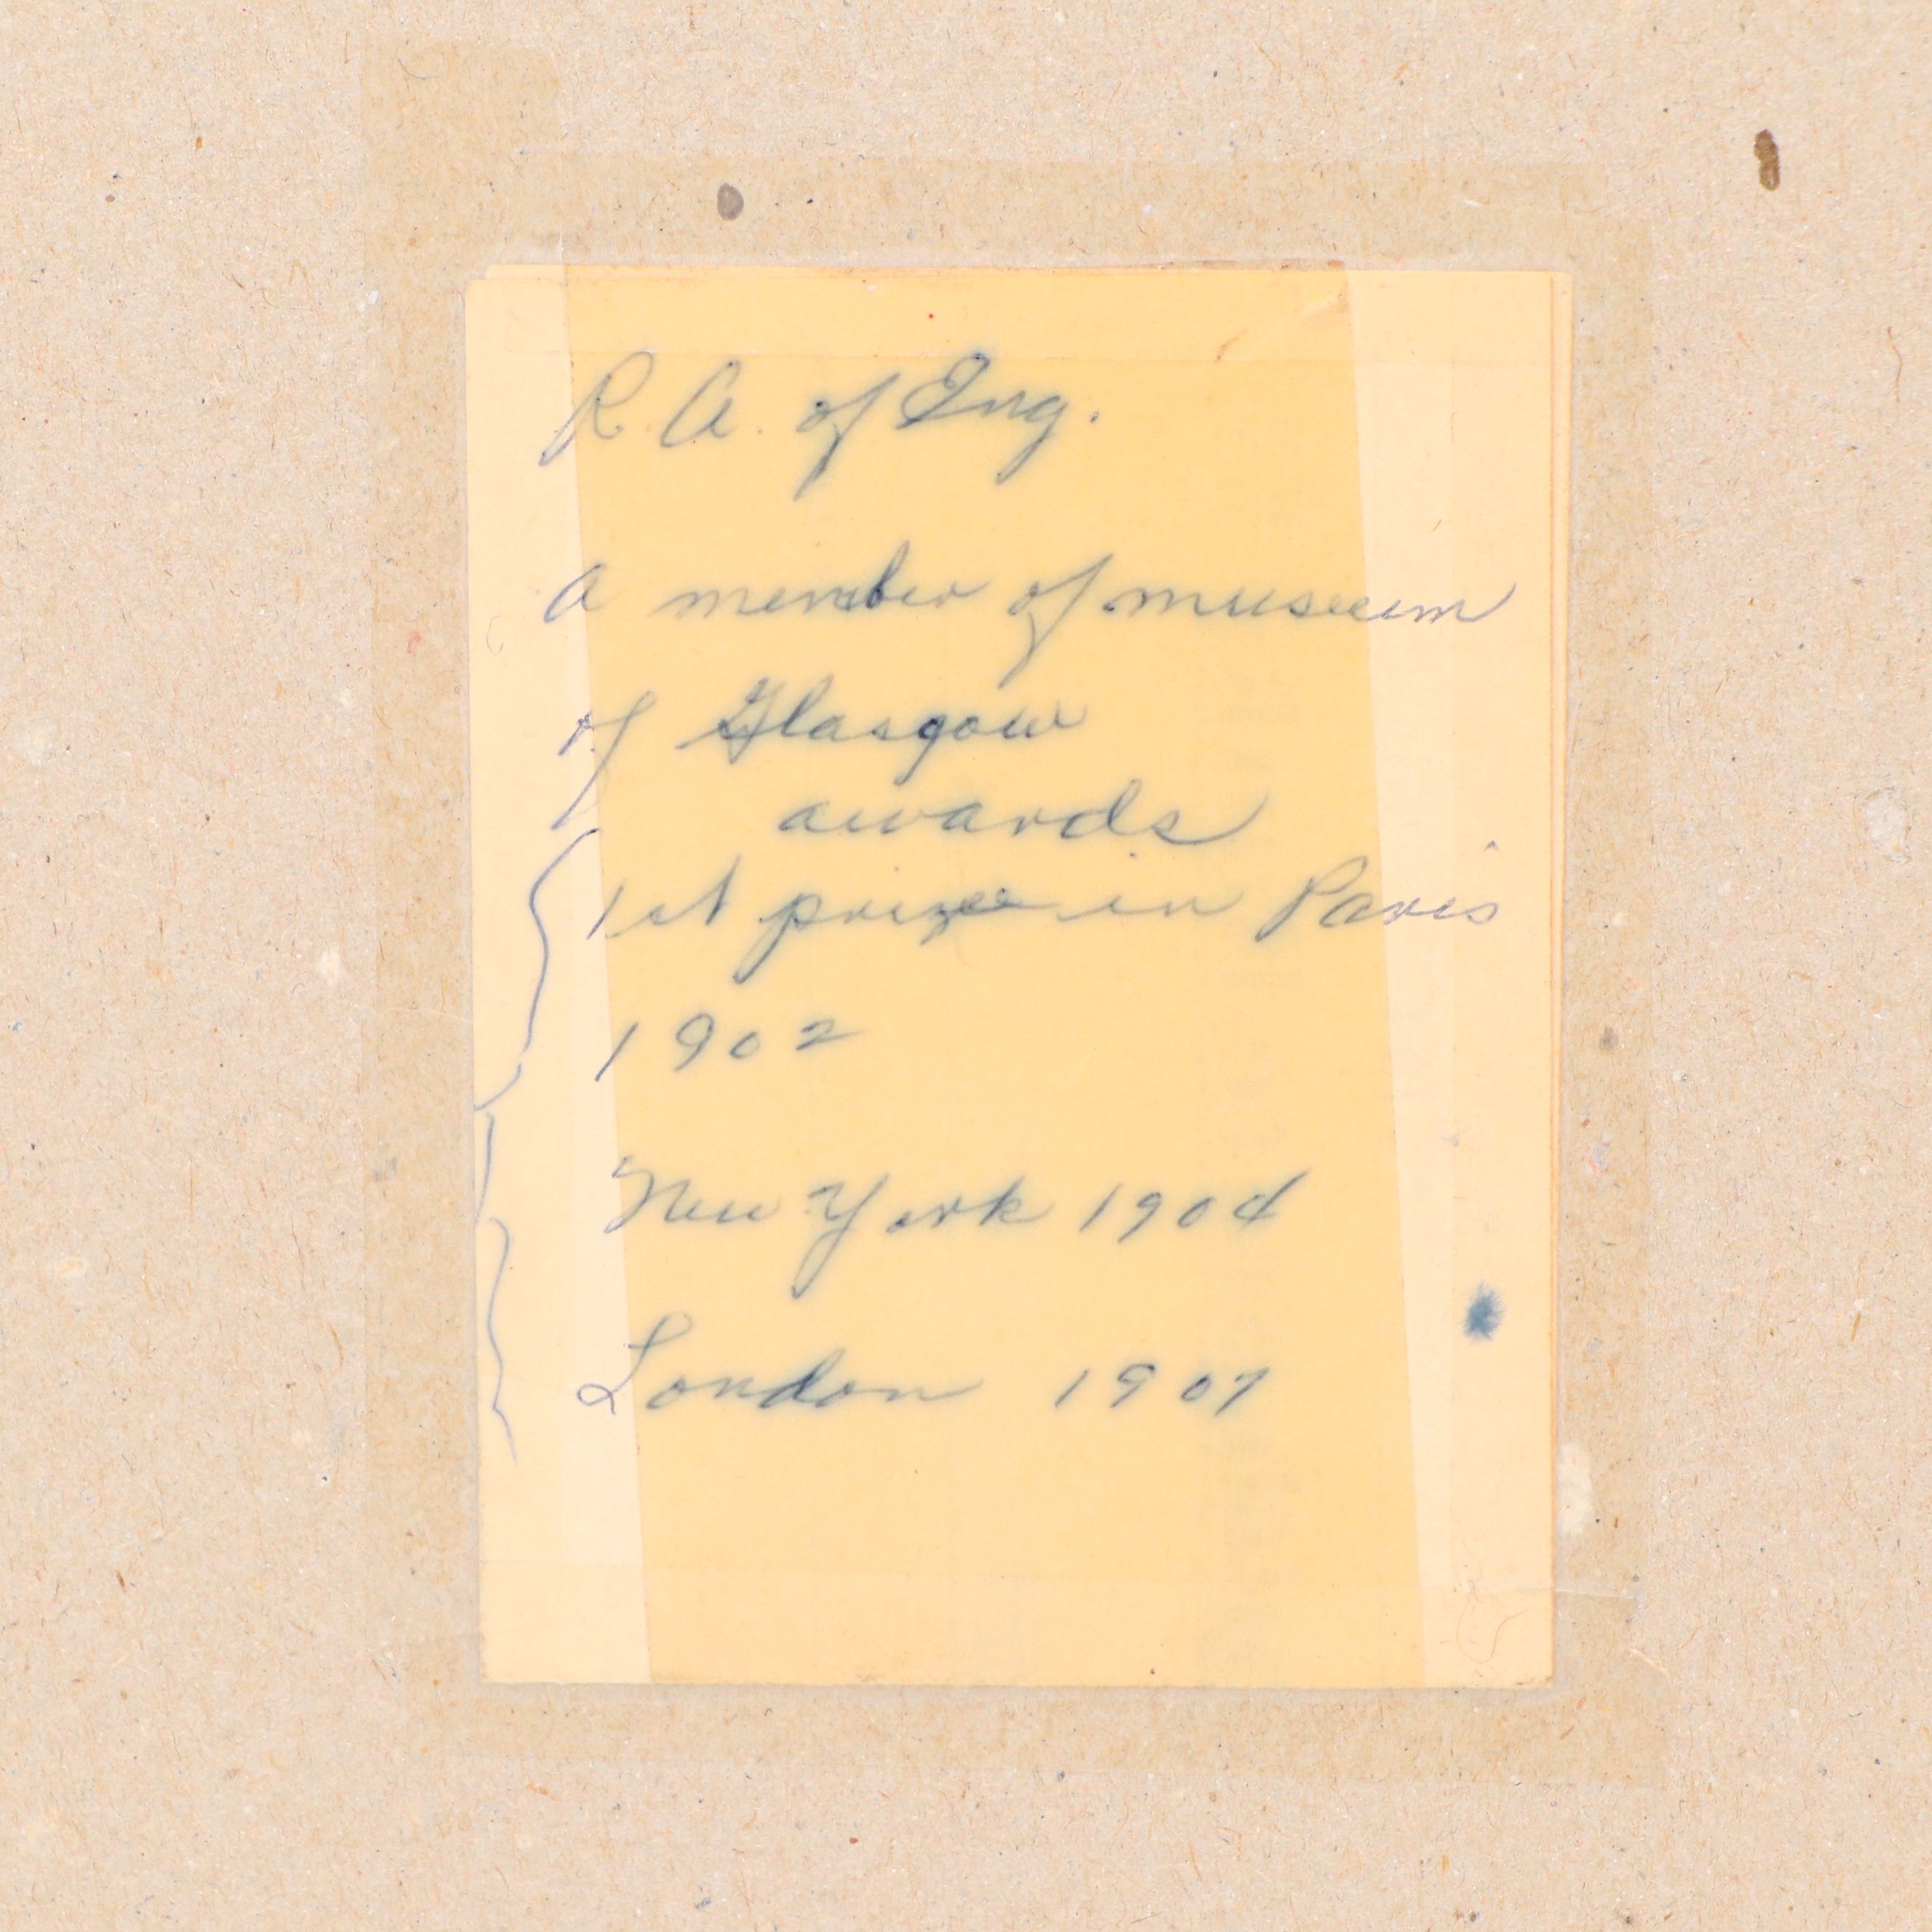 R. A. of Eng.
A member of museum
of Glasgow
awards
1st prize in Paris
1902
New York 1904
London 1907